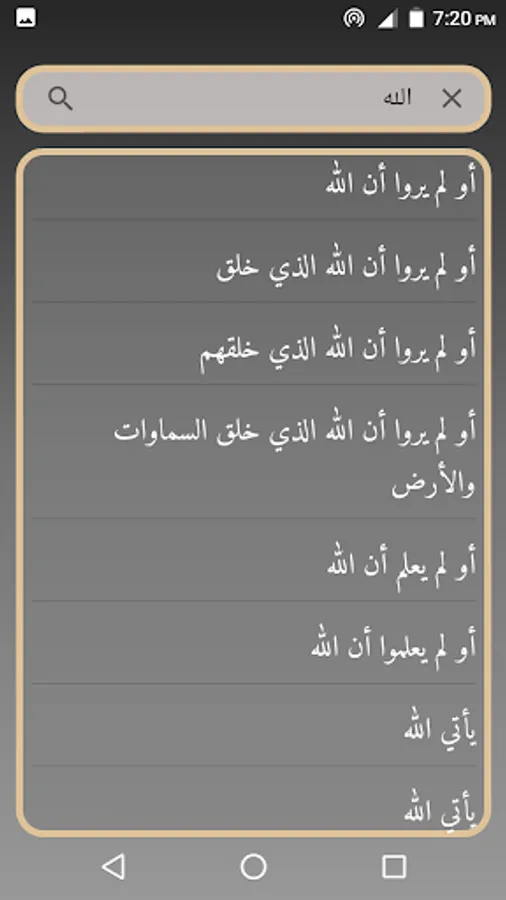 7:20 PM
الله
أو لم يروا أن الله
أو لم يروا أن الله الذي خلق
أو لم يروا أن الله الذي خلقهم
أو لم يروا أن الله الذي خلق السماوات
والأرض
أو لم يعلم أن الله
أو لم يعلموا أن الله
يأتي الله
يأتي الله